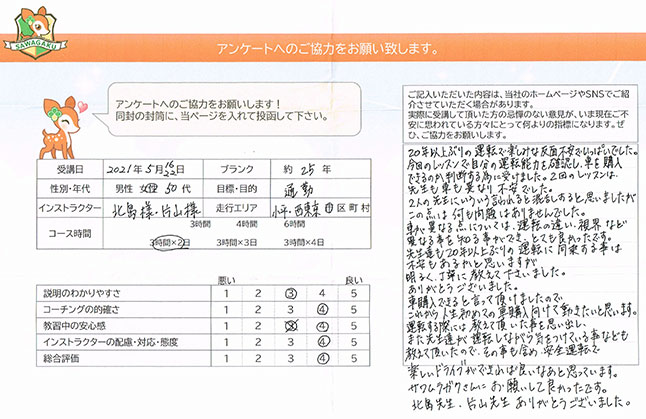 SAWAGAKU
アンケートへのご協力をお願い致します。
アンケートへのご協力をお願いします！
同封の封筒に、当ページを入れて投函して下さい。
受講日 2021年5月16日 22日 ブランク 約25年
性別・年代 男性 女性 50代 目標・目的 通勤
インストラクター 北島様・片山様 走行エリア 小平・西東京 市区町村
コース時間 3時間 4時間 6時間
3時間×2日 3時間×3日 3時間×4日
悪い 良い
説明のわかりやすさ 1 2 3 4 5
コーチングの的確さ 1 2 3 4 5
教習中の安心感 1 2 3 4 5
インストラクターの配慮・対応・態度 1 2 3 4 5
総合評価 1 2 3 4 5
ご記入いただいた内容は、当社のホームページやSNSでご紹介させていただく場合があります。
実際に受講して頂いた方の忌憚のない意見が、いま現在ご不安に思われている方々にとって何よりの指標になります。ぜひ、ご協力をお願いします。
20年以上ぶりの運転で楽しみな反面不安でいっぱいでした。
今回のレッスンで自分の運転能力を確認し、車を購入
できるか判断する為に受けました。2回のレッスンは、
先生も車も異なり不安でした。
2人の先生にいろいろ言われると混乱すると思いましたが
この点は何も問題はありませんでした。
車が異なる点については、運転の違い、視界など
異なる事を知る事ができ、とても良かったです。
先生達も20年以上ぶりの運転に同乗する事は
不安もあるかと思いますが
明るく、丁寧に教えて下さいました。
ありがとうございました。
車購入できると言って頂けましたので、
これから人生初めての車購入向けて動きたいと思います。
運転する際には教えて頂いた事を思い出し、
また先生達が運転しながら気をつけている事なども
教えて頂いたので、その事も含め、安全運転で
楽しいドライブができれば良いなあと思っています。
サワムラガクさんにお願いして良かったです。
北島先生、片山先生ありがとうございました。